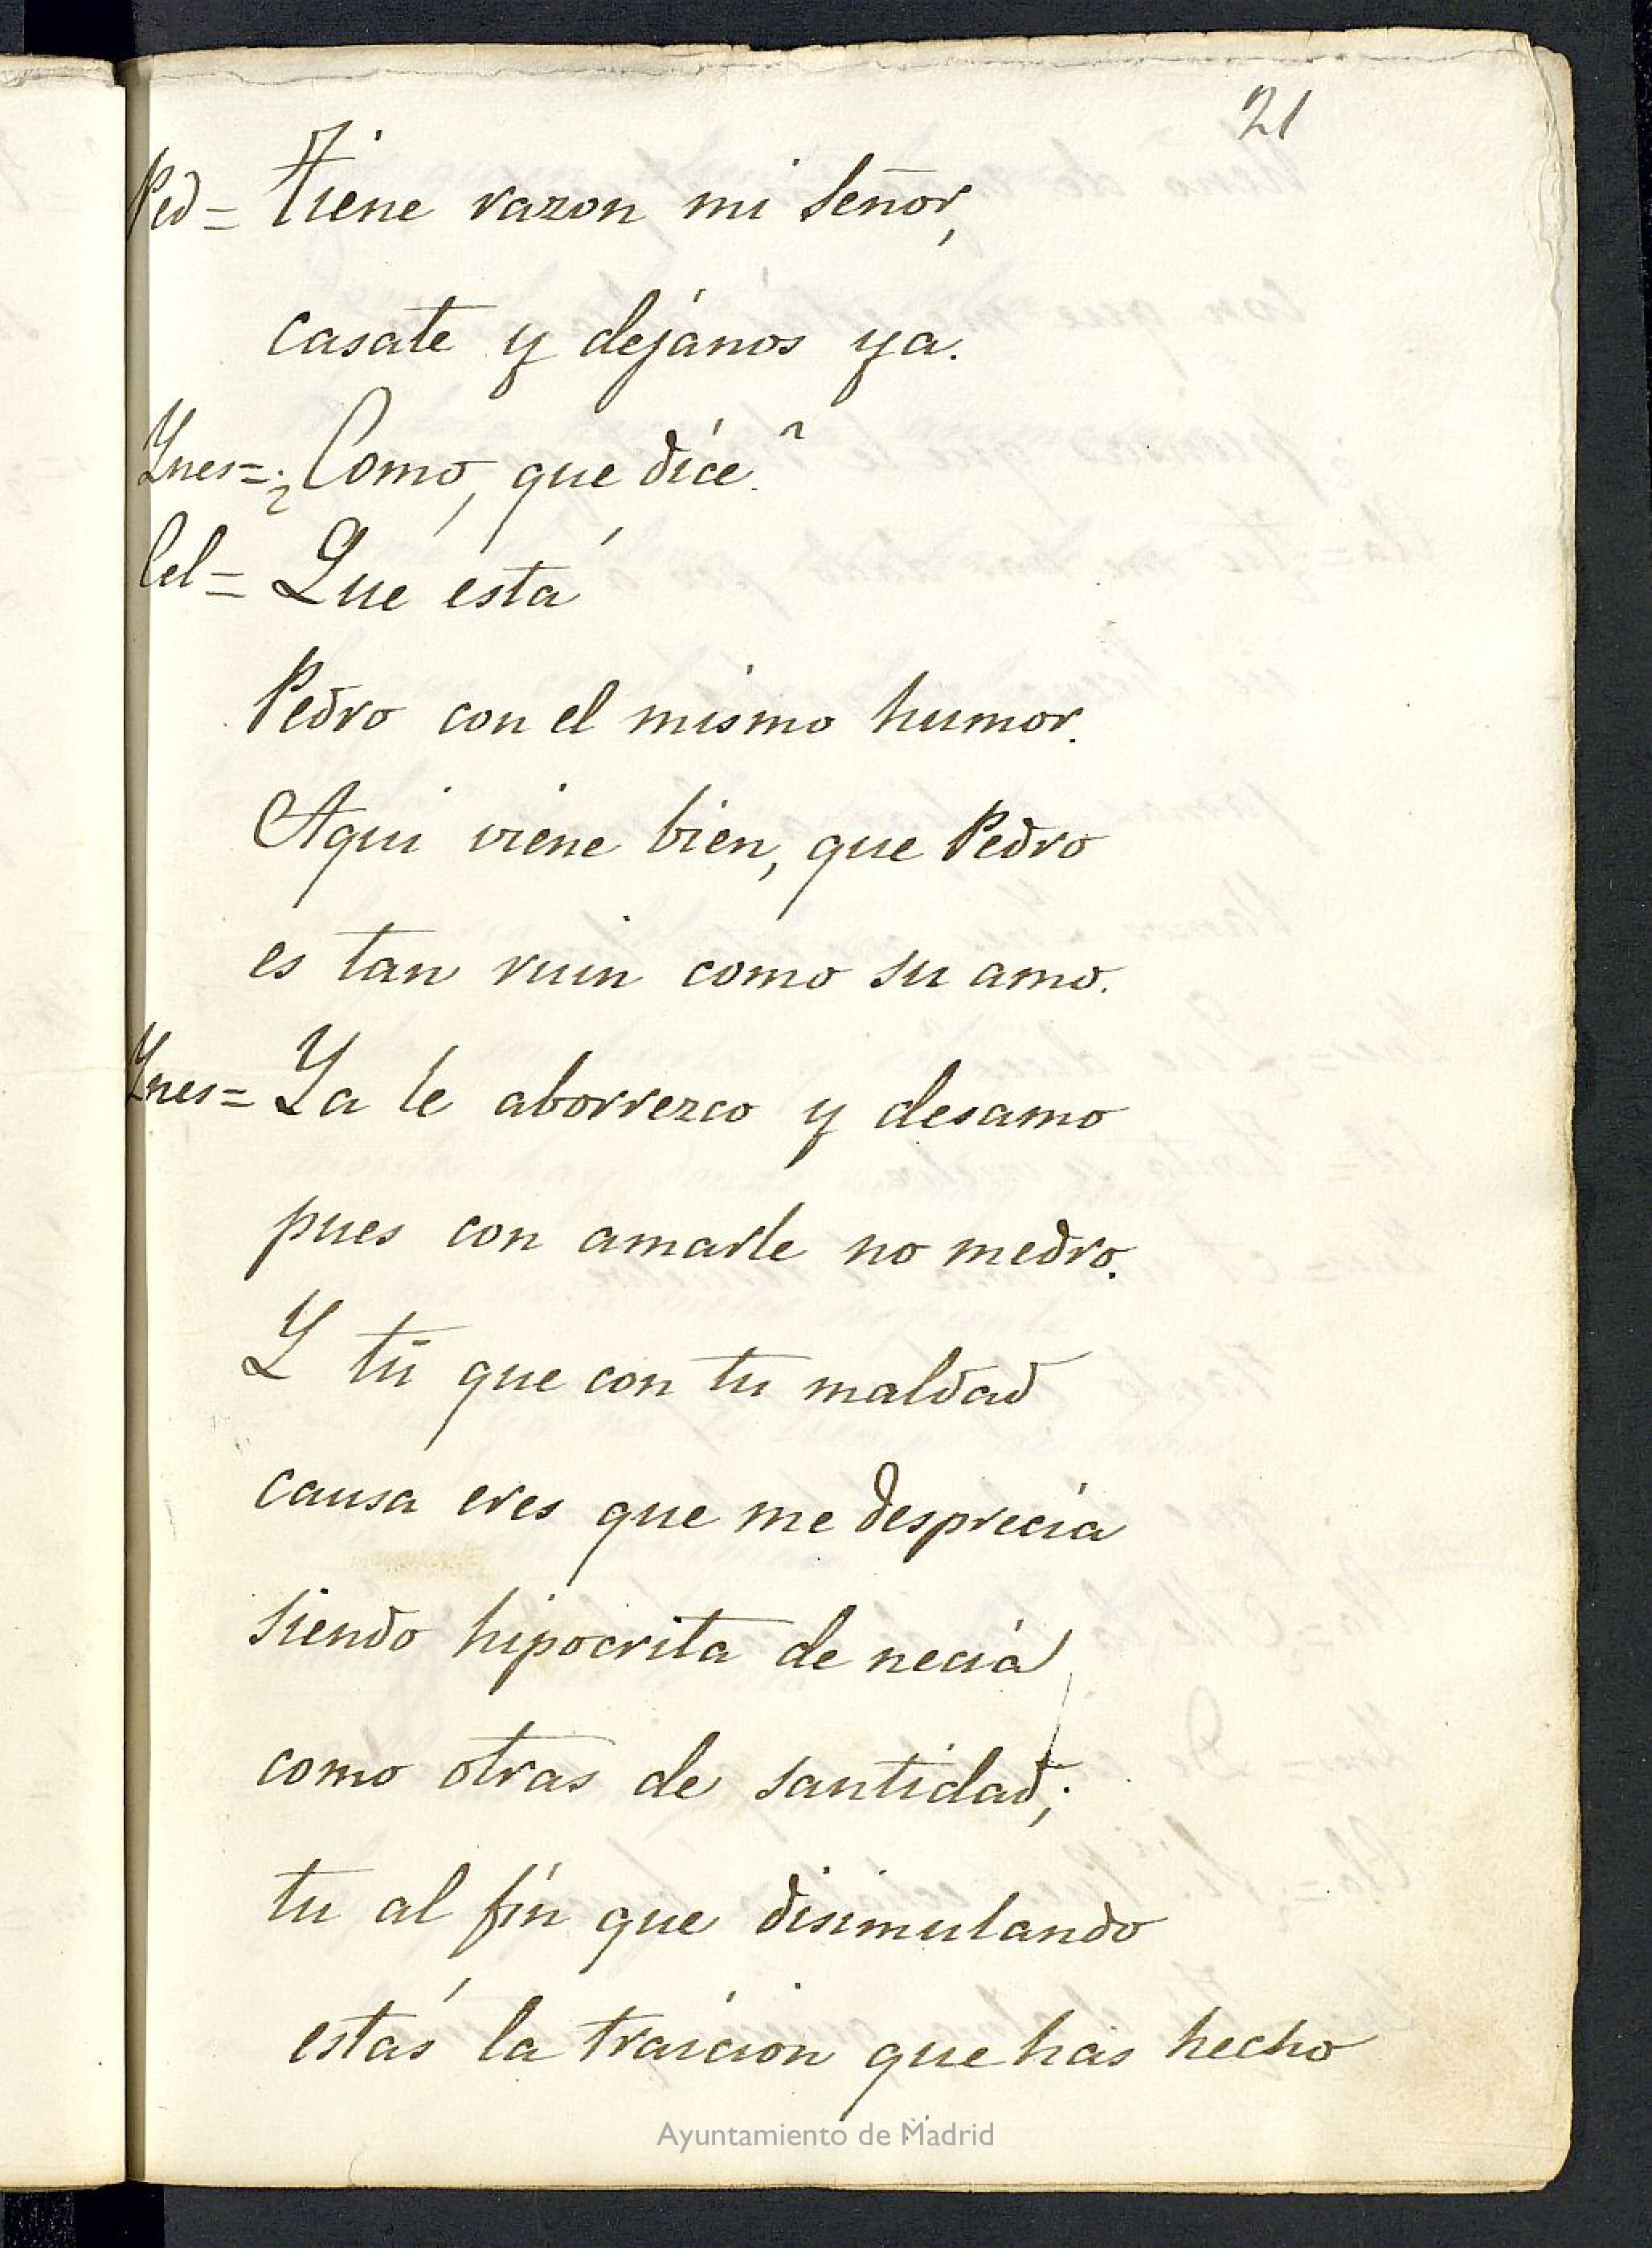 21
Ped= Tiene razon mi Señor,
casate y déjanos ya.
Ynes= ¿Como, que dice?
Cel= Que está
Pedro con el mismo humor.
Aqui viene bien, que Pedro
es tan ruin como su amo.
Ynes= Ya le aborrezco y desamo
pues con amarle no medro.
Y tú que con tu maldad
causa eres que me desprecia
siendo hipocrita de necia
como otras de santidad;
tu al fin que disimulando
estás la traicion que has hecho
Ayuntamiento de Madrid